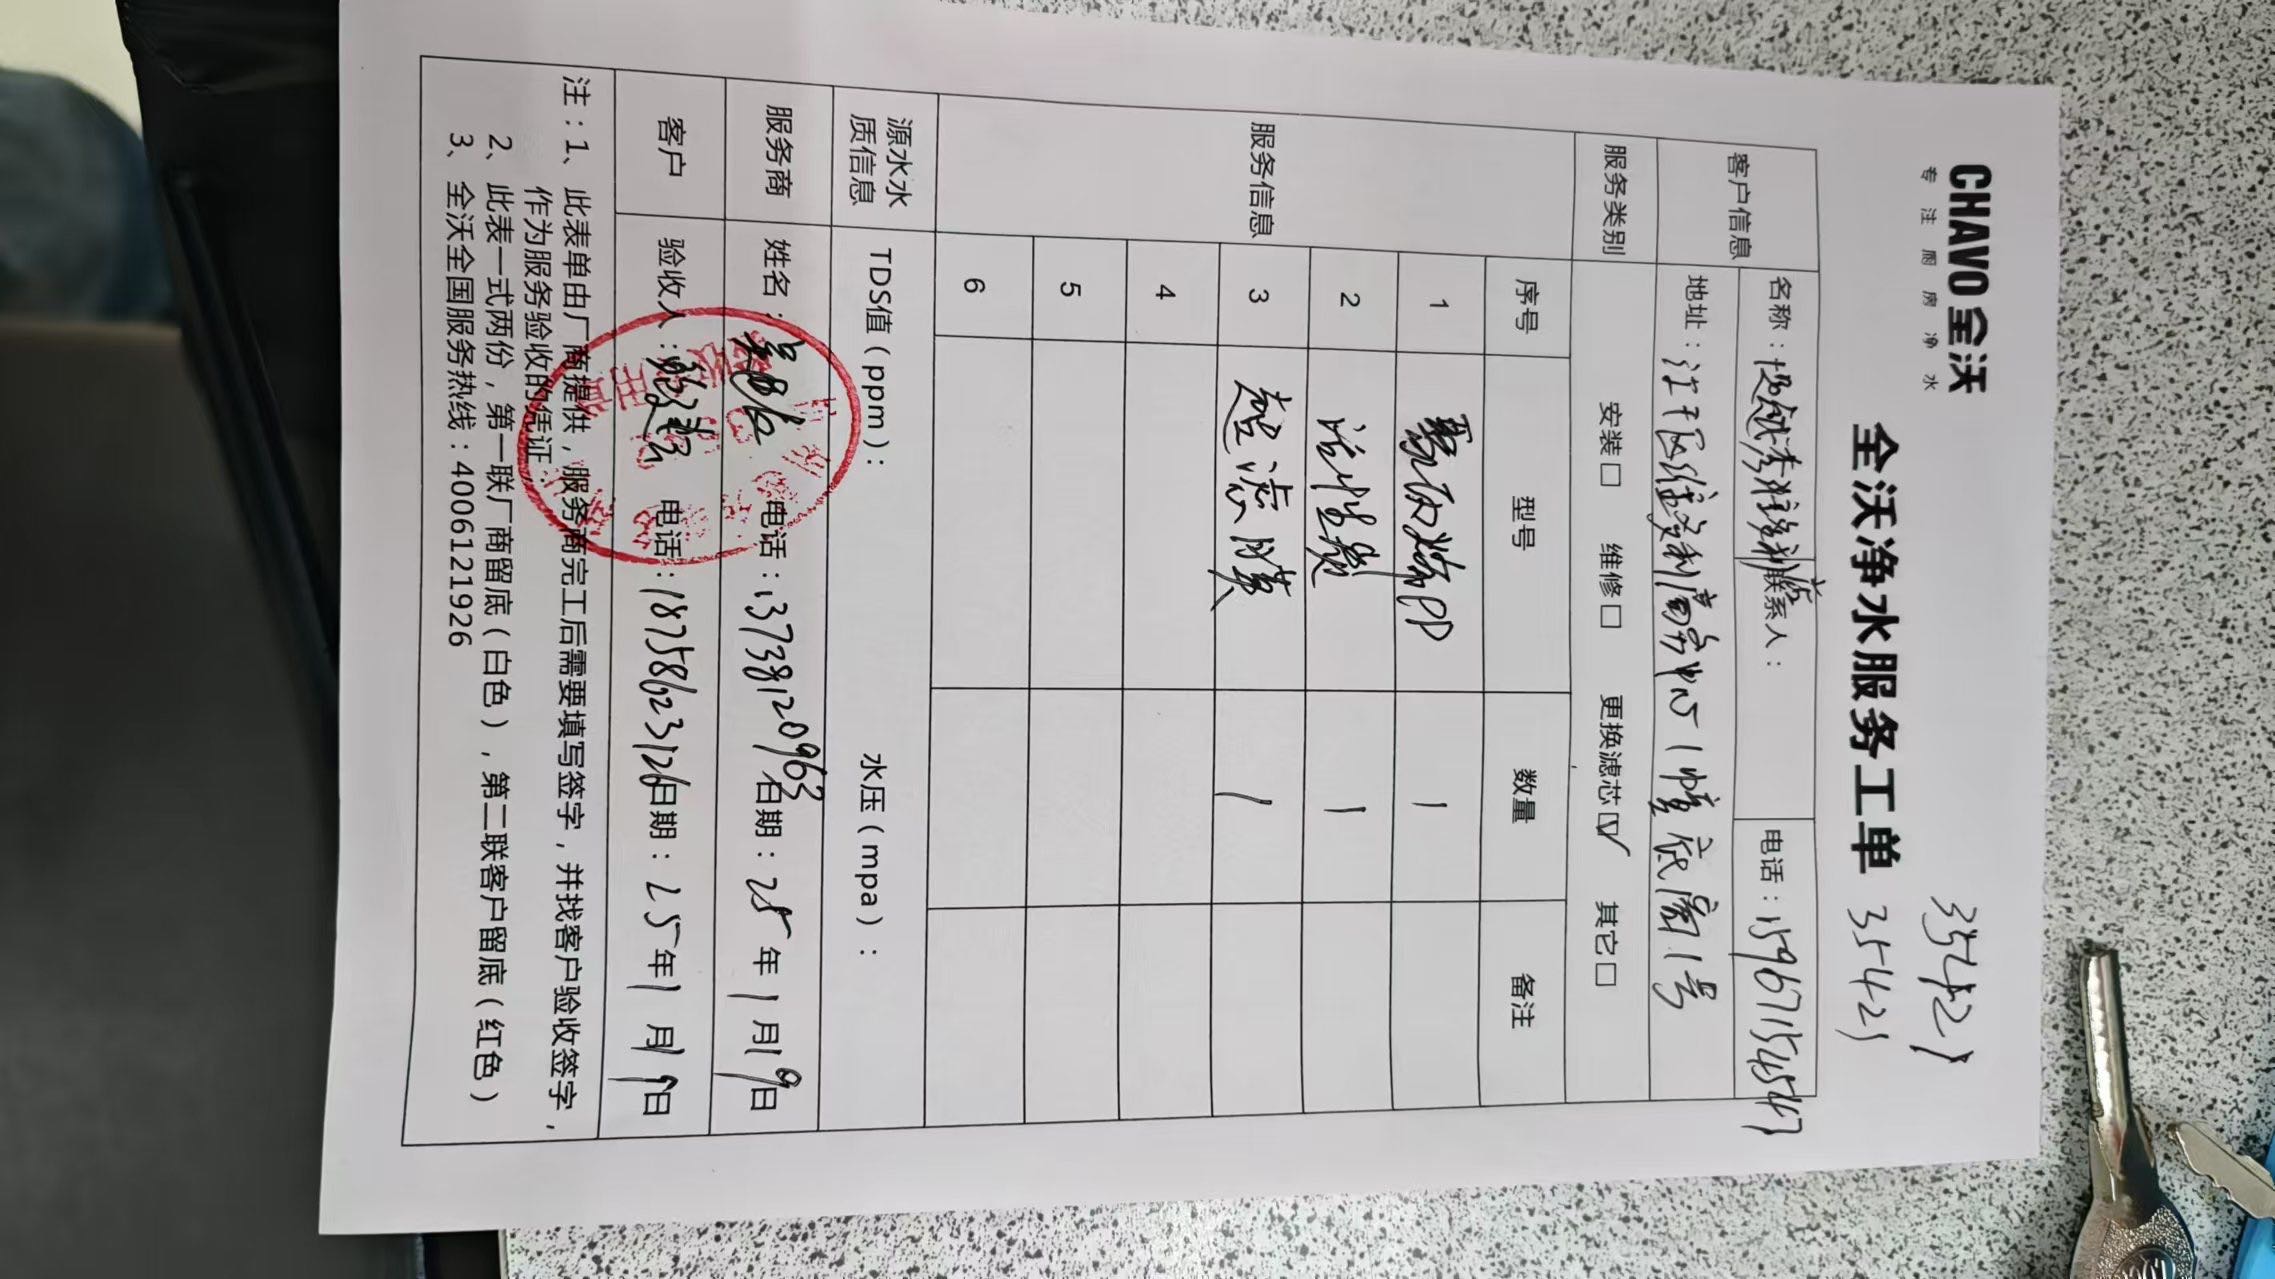 CHAVO 全沃
专注厨房净水
35421
全沃净水服务工单 35421
客户信息 名称: 联系人: 电话:15967154547
地址:江干区 利商务中心1幢底商1号
服务类别 安装□ 维修□ 更换滤芯☑ 其它□
服务信息 序号 型号 数量 备注
1 聚丙烯PP 1
2 活性炭 1
3 超滤膜 1
4
5
6
源水水质信息 TDS值(ppm): 水压(mpa):
服务商 姓名: 电话:13738120963 日期:25年1月19日
客户 验收人: 电话:18758623126 日期:25年1月19日
注:1、此表单由厂商提供,服务商完工后需要填写签字,并找客户验收签字,
作为服务验收的凭证.
2、此表一式两份,第一联厂商留底(白色),第二联客户留底(红色)
3、全沃全国服务热线:4006121926